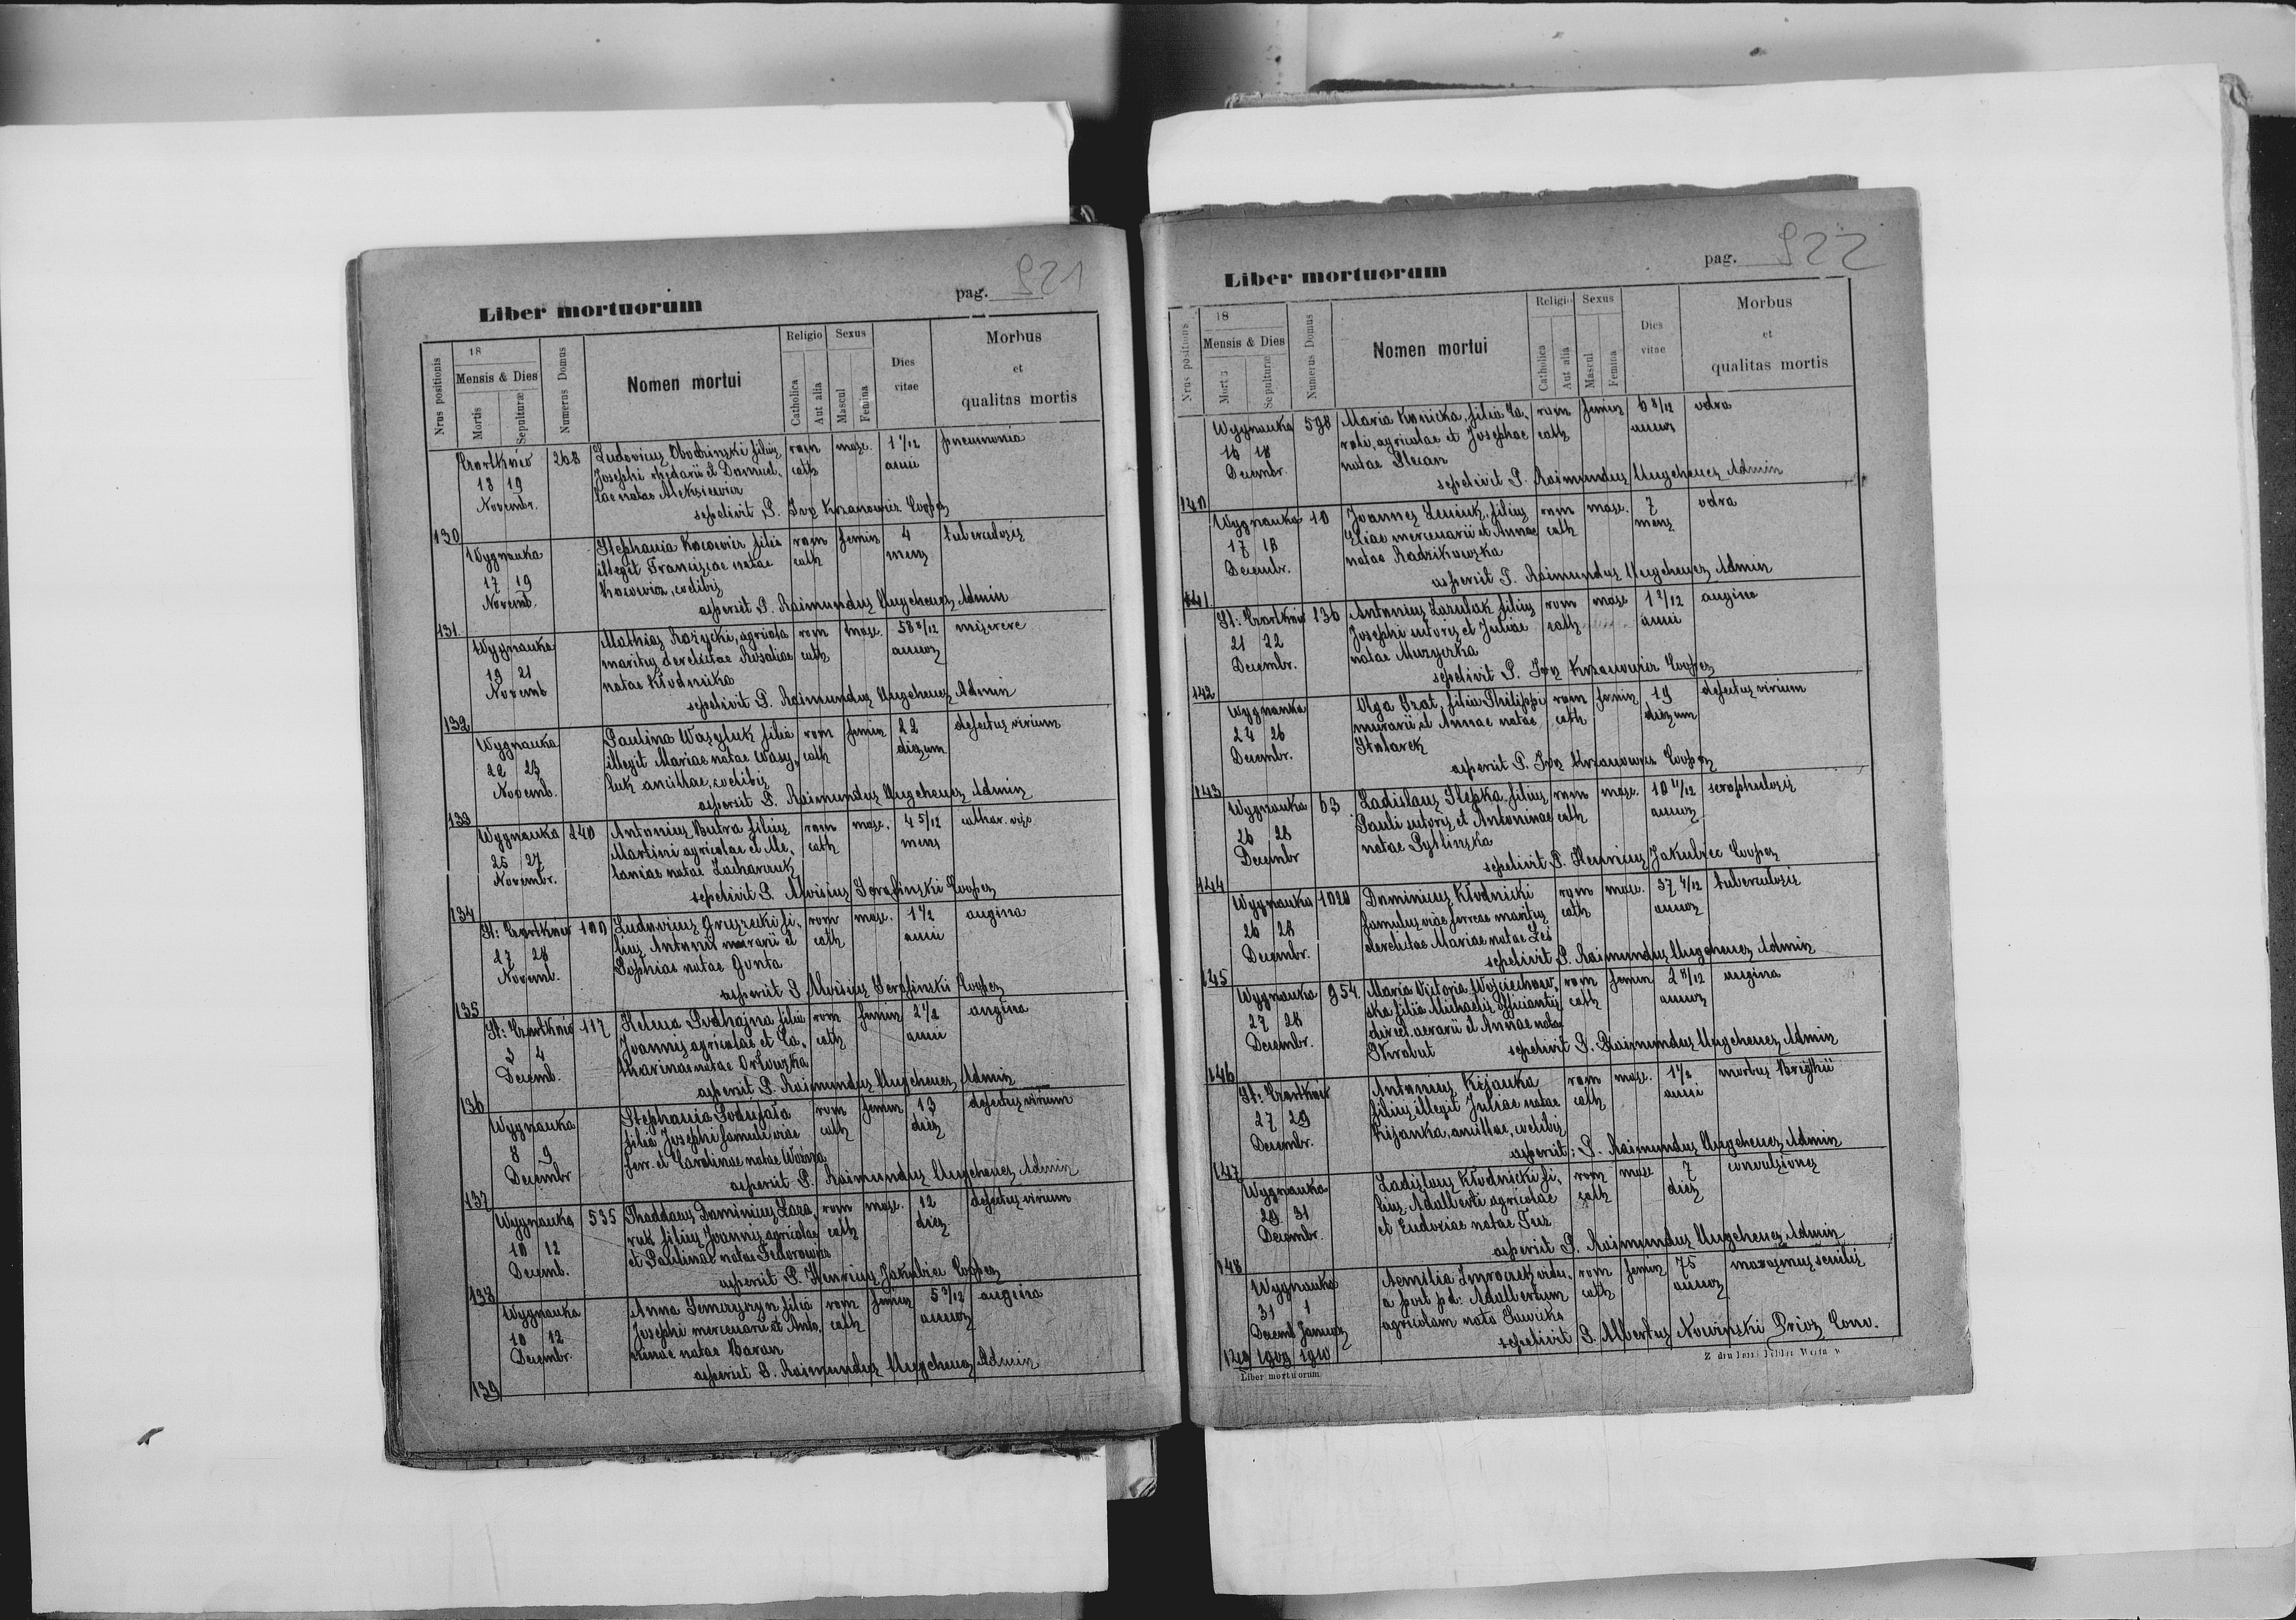 Liber mortuorum
pag. 921
Nrus positionis
18
Mensis & Dies
Mortis
Sepulturæ
Numerus Domus
Nomen mortui
Religio
Catholica
Aut alia
Sexus
Mascul
Femina
Dies vitae
Morbus et qualitas mortis
130
Czortków 268
18 19 Novembr.
Ludovicus filius
Josephi et Domicel-
lae natae Aleksiewicz
rom cath masc. 1 1/12 anni pneumonia
sepelivit P. Ivo Krzanowicz Cooper
131
Wygnanka
17 19 Novemb.
Stephania Kocowicz filia
illegit Franciscae natae
Kocowicz, coelibis
rom cath femin 4 mens tuberculosis
aspersit P. Raimundus Ungeheuer Admin
132
Wygnanka
19 21 Novemb
Mathias Rożycki, agricola
maritus derelictae Rosaliae
natae Kłodnicka
rom cath masc. 58 8/12 annor miserere
sepelivit P. Raimundus Ungeheuer Admin
133
Wygnanka
22 23 Novemb.
Paulina Wasyluk filia
illegit Mariae natae Wasy-
luk ancillae, coelibis
rom cath femin 22 dierum defectus virium
aspersit P. Raimundus Ungeheuer Admin
134
Wygnanka 240
25 27 Novembr.
Antonius Butra filius
Martini agricolae et Me-
laniae natae Zacharczuk
rom cath masc. 4 5/12 mens cathar.
sepelivit P. Aloisius Serafinski Cooper
135
St: Czortków 100
27 28 Novemb.
Ludovicus Gruszecki fi-
lius Antonii murarii et
Sophiae natae Gonta
rom cath masc. 1 1/2 anni angina
aspersit P Aloisius Serafinski Cooper
136
St: Czortków 117
3 4 Decemb.
Helena Podhajna filia
Joannis agricolae et Ca-
tharinae natae Orłowska
rom cath femin 2 1/2 anni angina
aspersit P. Raimundus Ungeheuer Admin
137
Wygnanka
8 9 Decembr
Stephania
filia Josephi famuli viae
ferr. et Carolinae natae Woźna
rom cath femin 13 dier defectus virium
aspersit P. Raimundus Ungeheuer Admin
138
Wygnanka 535
10 12 Decemb.
Thaddaeus Dominicus Laza-
ruk filius Joannis agricolae
et Paulinae natae Fedorowicz
rom cath masc. 12 dier defectus virium
aspersit P. Henricus Jakubiec Cooper
139
Wygnanka
10 12 Decembr.
Anna Semczyszyn filia
Josephi mercenarii et Anto-
ninae natae Baran
rom cath femin 5 3/12 annor angina
aspersit P. Raimundus Ungeheuer Admin
Liber mortuorum
pag. 922
Nrus positionis
18
Mensis & Dies
Mortis
Sepulturæ
Numerus Domus
Nomen mortui
Religio
Catholica
Aut alia
Sexus
Mascul
Femina
Dies vitae
Morbus et qualitas mortis
140
Wygnanka 598
16 18 Decembr.
Maria Kronicka, filia Ca-
roli, agricolae et Josephae
natae Stecan
rom cath femin 6 8/12 annor odra
sepelivit P. Raimundus Ungeheuer Admin
141
Wygnanka 10
17 18 Decembr.
Joannes Leniuk, filius
Eliae mercenarii et Annae
natae Radzikowska
rom cath masc. 7 mens odra
aspersit P. Raimundus Ungeheuer Admin
142
St: Czortków 136
21 22 Decembr.
Antonius Lazuluk filius
Josephi sutoris et Juliae
natae Muzyczka
rom cath masc 1 2/12 anni angina
sepelivit P. Ivo Krzanowicz Cooper
143
Wygnanka
24 26 Decembr.
Olga Szot, filia Philippi
murarii et Annae natae
Stolarek
rom cath femin 19 dierum defectus virium
aspersit P. Ivo Krzanowicz Cooper
144
Wygnanka 63
26 28 Decembr
Ladislaus Slepka filius
Pauli sutoris et Antoninae
natae Pytlinska
rom cath masc. 10 11/12 annor scrophulosis
sepelivit P. Henricus Jakubiec Cooper
145
Wygnanka 1020
26 28 Decembr.
Dominicus Kłodnicki
famulus viae ferreae maritus
derelictae Mariae natae Leś
rom cath masc. 37 4/12 annor tuberculosis
sepelivit P. Raimundus Ungeheuer Admin
146
Wygnanka 954.
27 28 Decembr.
Maria Victoria Wojciechow-
ska filia Michaelis officiantis
direct. aerarii et Annae natae
Skrobut
rom cath femin 2 8/12 annor angina
sepelivit P. Raimundus Ungeheuer Admin
147
St: Czortków
27 29 Decembr.
Antonius Kijanka
filius illegit Juliae natae
Kijanka, ancillae, coelibis
rom cath masc. 1 1/2 anni morbus Brigthii
aspersit: P. Raimundus Ungeheuer Admin
148
Wygnanka
29 31 Decembr.
Ladislaus Kłodnicki fi-
lius Adalberti agricolae
et Eudoxiae natae Tuz
rom cath masc 7 dier convulsiones
aspersit P. Raimundus Ungeheuer Admin
149
Wygnanka
31 1 Decemb Januar 1909 1910
Aemilia Smroczek vidu-
a post pd: Adalbertum
agricolam nata Sawicka
rom cath femin 75 annor marasmus senilis
sepelivit P. Albertus Nowinski Prior Conv.
Liber mortuorum